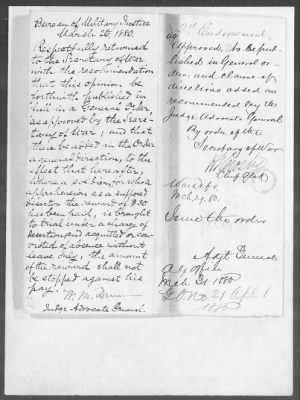 Bureau of Military Justice
March 26, 1880.
Respectfully returned
to the Secretary of War
with the recommendation
that this opinion be
forthwith published in
full in a General Order
as approved by the Secre-
tary of War; and that
there be added in the Order
a general direction, to the
effect that hereafter,
where a soldier, for whose
apprehension as a suppos'd
deserter the reward of $30
has been paid, is brought
to trial under a charge of
desertion and acquitted or con-
victed of absence without
leave only, the amount
of the reward shall not
be stopped against his
pay.
W. M. Dunn
Judge Advocate General.
Endorsement,
Approved, to be pub-
lished in general or-
ders, and clause of
directions added as
recommended by the
Judge Advocate General
By order of the
Secretary of War
Chief Clerk
War Dept.
Mch 29, 80.
Issued the orders
Adjt General
A.G. Office
Mch 31 1880
G.O. No 21 Apl 1
1880